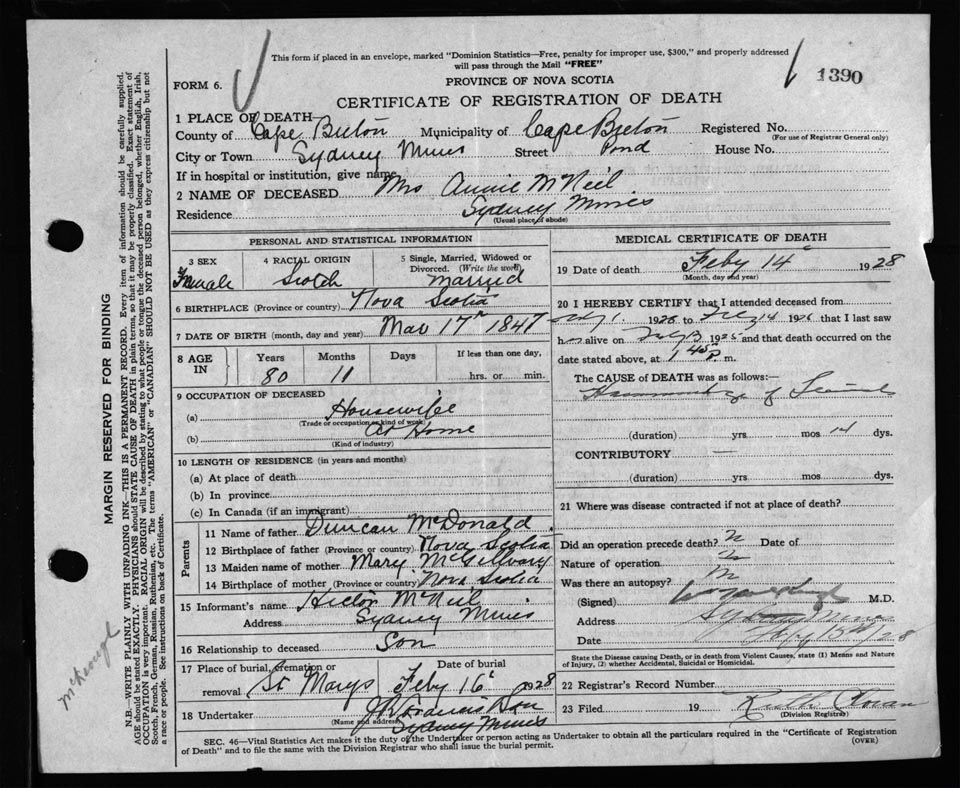 This form if placed in an envelope, marked "Dominion Statistics—Free, penalty for improper use, $300," and properly addressed
will pass through the Mail "FREE"
1390
PROVINCE OF NOVA SCOTIA
FORM 6.
CERTIFICATE OF REGISTRATION OF DEATH
1 PLACE OF DEATH
County of Cape Breton Municipality of Cape Breton Registered No.
(For use of Registrar General only)
City or Town Sydney Mines Street Pond House No.
If in hospital or institution, give name
2 NAME OF DECEASED Mrs Annie McNeil
Residence Sydney Mines
(Usual place of abode)
PERSONAL AND STATISTICAL INFORMATION
3 SEX
Female
4 RACIAL ORIGIN
Scotch
5 Single, Married, Widowed or
Divorced. (Write the word)
Married
6 BIRTHPLACE (Province or country) Nova Scotia
7 DATE OF BIRTH (month, day and year) Mar 17th 1847
8 AGE IN
Years Months Days If less than one day,
80 11 hrs. or min.
9 OCCUPATION OF DECEASED
(a) Housewife
(Trade or occupation or kind of work)
(b) At Home
(Kind of industry)
10 LENGTH OF RESIDENCE (in years and months)
(a) At place of death
(b) In province
(c) In Canada (if an immigrant)
Parents
11 Name of father Duncan McDonald
12 Birthplace of father (Province or country) Nova Scotia
13 Maiden name of mother Mary McGillvary
14 Birthplace of mother (Province or country) Nova Scotia
15 Informant's name Hector McNeil
Address Sydney Mines
16 Relationship to deceased Son
17 Place of burial, cremation or
removal St Marys
Date of burial
Feby 16 1928
18 Undertaker Son
(Name and address)
Sydney Mines
MEDICAL CERTIFICATE OF DEATH
19 Date of death Feby 14 1928
(Month, day and year)
20 I HEREBY CERTIFY that I attended deceased from
1928 to 14 1928 that I last saw
h alive on 1928 and that death occurred on
date stated above, at 1.45 P. m.
The CAUSE of DEATH was as follows:—
of
(duration) yrs mos 14 dys.
CONTRIBUTORY —
(duration) yrs mos dys.
21 Where was disease contracted if not at place of death?
Did an operation precede death? Date of
Nature of operation
Was there an autopsy?
(Signed) M.D.
Address Sydney Mines
Date
State the Disease causing death, or in death from Violent Causes, state (1) Means and Nature
of Injury, (2) whether Accidental, Suicidal or Homicidal.
22 Registrar's Record Number
23 Filed 19 Ruth
(Division Registrar)
SEC. 46—Vital Statistics Act makes it the duty of the Undertaker or person acting as Undertaker to obtain all the particulars required in the "Certificate of Registration
of Death" and to file the same with the Division Registrar who shall issue the burial permit.
(OVER)
MARGIN RESERVED FOR BINDING
N.B.—WRITE PLAINLY WITH UNFADING INK—THIS IS A PERMANENT RECORD. Every item of information should be carefully supplied.
AGE should be stated EXACTLY. PHYSICIANS should STATE CAUSE OF DEATH in plain terms, so that it may be properly classified. Exact statement of
OCCUPATION is very important. RACIAL ORIGIN will be described by stating to what people or tongue the deceased person belonged, whether English, Irish,
Scotch, French, German, Russian, Ruthenian, etc. The terms "AMERICAN" or "CANADIAN" SHOULD NOT BE USED as they express citizenship but not
a race or people. See instructions on back of Certificate.